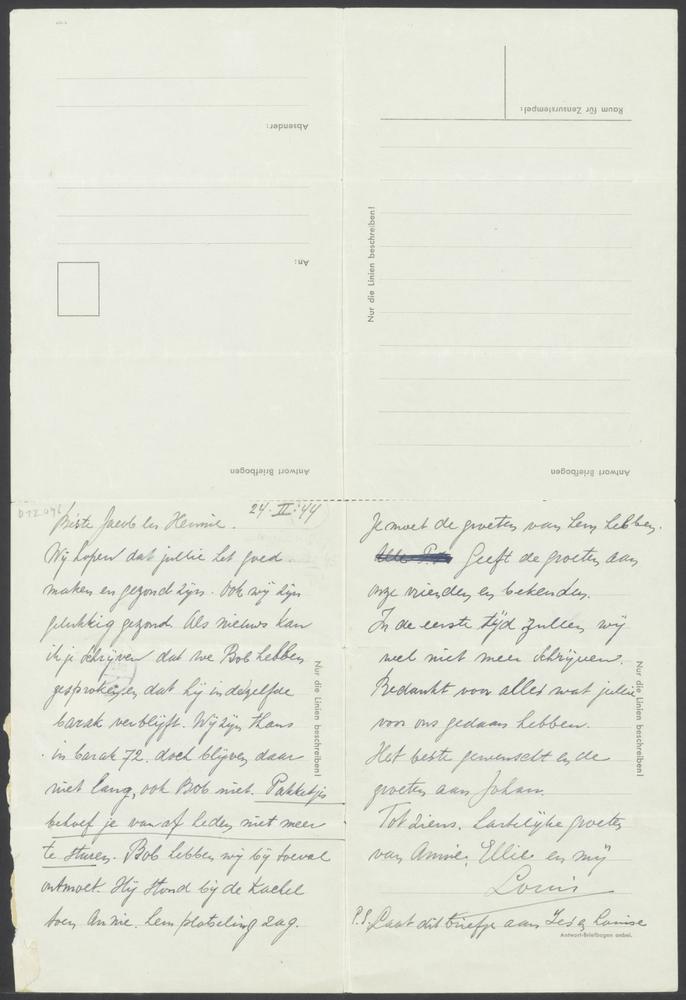 Absender:
An:
Antwort Briefbogen
Raum für Zensurstempel:
Nur die Linien beschreiben!
Antwort Briefbogen
24-III-'44
Beste Jacob en Hennie.
Wij hopen dat jullie het goed
maken en gezond zijn. Ook wij zijn
gelukkig gezond. Als nieuws kan
ik je schrijven dat we Bob hebben
gesproken en dat hij in dezelfde
barak verblijft. Wij zijn thans
in barak 72. doch blijven daar
niet lang, ook Bob niet. Pakketjes
behoef je van af heden niet meer
te sturen. Bob hebben wij bij toeval
ontmoet. Hij stond bij de kachel
toen Annie hem plotseling zag.
Nur die Linien beschreiben!
Je moet de groeten van hem hebben.
Geeft de groeten aan
onze vrienden en bekenden.
In de eerste tijd zullen wij
wel niet meer schrijven.
Bedankt voor alles wat jullie
voor ons gedaan hebben.
Het beste gewenscht en de
groeten aan Johan.
Tot ziens. Hartelijke groeten
van Annie, Ellie en mij
Louis
P.S. Laat dit briefje aan Les en Louise
Nur die Linien beschreiben!
Antwort-Briefbogen anbei.